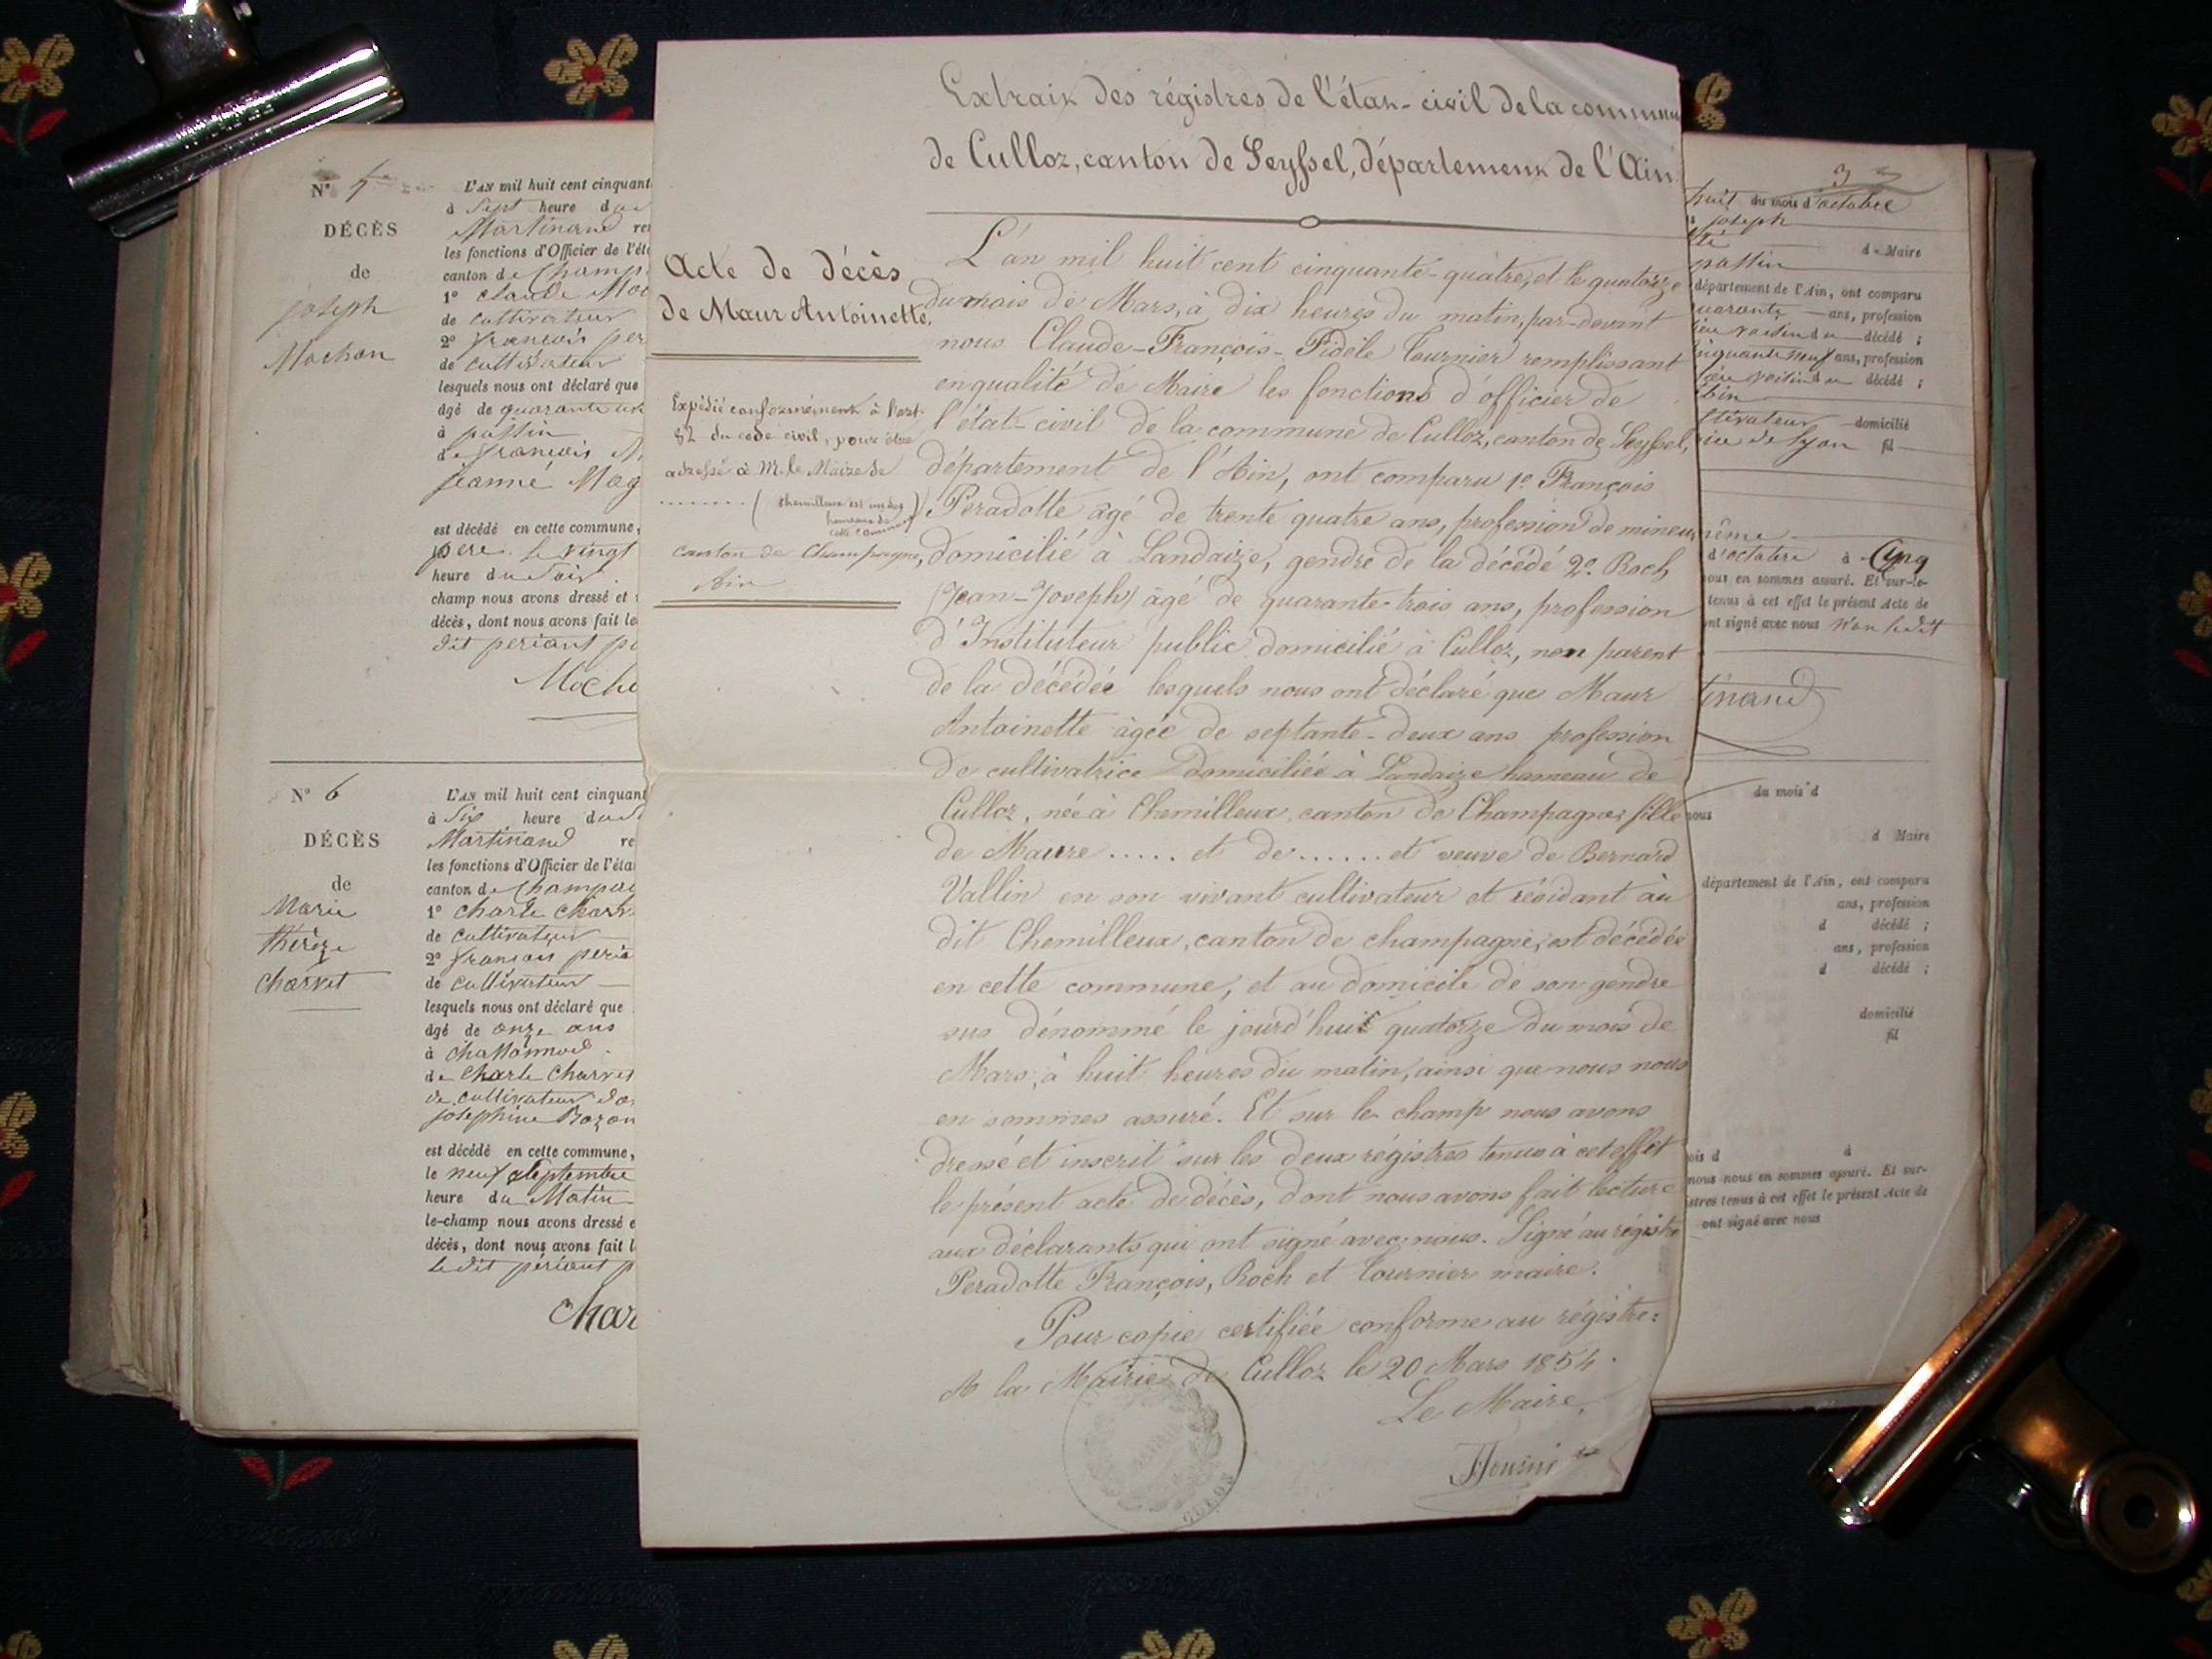 N° 5
DÉCÈS
de
joseph
Mochon
L'AN mil huit cent cinquant
à Sept heure du
Martinand re
les fonctions d'Officier de l'éta
canton de Champ
1° claude Moc
de cultivateur
2° francois per
de cultivateur
lesquels nous ont déclaré que
âgé de quarante un
à passin
de francois M
jeanne Mag
est décédé en cette commune,
pere le vingt
heure du soir
champ nous avons dressé et
décès, dont nous avons fait le
dit periant p
Mocho
N° 6
DÉCÈS
de
Marie
thérèze
charvet
L'AN mil huit cent cinquant
à Six heure du
Martinand re
les fonctions d'Officier de l'éta
canton de Champag
1° charle charv
de cultivateur
2° francois peria
de cultivateur
lesquels nous ont déclaré que
âgé de onze ans
à chattonnod
de charle charvet
de cultivateur do
josephine Bozon
est décédé en cette commune,
le neuf septembre
heure du Matin
le-champ nous avons dressé e
décès, dont nous avons fait l
le dit périant p
char
Extrait des régistres de l'état-civil de la commune
de Culloz, canton de Seyssel, département de l'Ain.
Acte de décès
de Maur Antoinette.
Expédié conformément à l'art.
82 du code civil, pour être
adressé à M. le Maire de
........ (chemilleux est un des
hameaux de
cette commune)
canton de Champagne,
Ain
L'an mil huit cent cinquante-quatre, et le quatorze
du mois de Mars, à dix heures du matin, par-devant
nous Claude-François-Fidèle Tournier remplissant
en qualité de Maire les fonctions d'officier de
l'état-civil de la commune de Culloz, canton de Seyssel,
département de l'Ain, ont comparu 1° François
Peradotte âgé de trente quatre ans, profession de mineur
domicilié à Landaize, gendre de la décédé 2° Roch
(Jean-Joseph) âgé de quarante-trois ans, profession
d'Instituteur public domicilié à Culloz, non parent
de la décédée lesquels nous ont déclaré que Maur
Antoinette âgée de septante-deux ans profession
de cultivatrice domiciliée à Landaize hameau de
Culloz, née à Chemilleux, canton de Champagne, fille
de Maure ..... et de ...... et veuve de Bernard
Vallin en son vivant cultivateur et résidant au
dit Chemilleux, canton de champagne, est décédée
en cette commune, et au domicile de son gendre
sus dénommé le jourd'hui quatorze du mois de
Mars, à huit heures du matin, ainsi que nous nous
en sommes assuré. Et sur le champ nous avons
dressé et inscrit sur les deux régistres tenus à cet effet
le présent acte de décès, dont nous avons fait lecture
aux déclarants qui ont signé avec nous. Signé au régistre
Peradotte François, Roch et Tournier maire.
Pour copie certifiée conforme au régistre.
A la Mairie de Culloz le 20 Mars 1854.
Le Maire,
Tournier
3
huit du mois d'octobre
joseph
d Maire
passin
département de l'Ain, ont comparu
quarante ans, profession
lieu voisin du décédé ;
inquante neuf ans, profession
lieu voisin du décédé ;
bin
ltivateur domicilié
de lyon fil
même
d'octobre à Cinq
nous en sommes assuré. Et sur-le-
tenus à cet effet le présent Acte de
ont signé avec nous Non ledit
tinand
du mois d
nous
d Maire
département de l'Ain, ont comparu
ans, profession
d décédé ;
ans, profession
d décédé ;
domicilié
fil
ois d à
nous nous en sommes assuré. Et sur-
istres tenus à cet effet le présent Acte de
ont signé avec nous